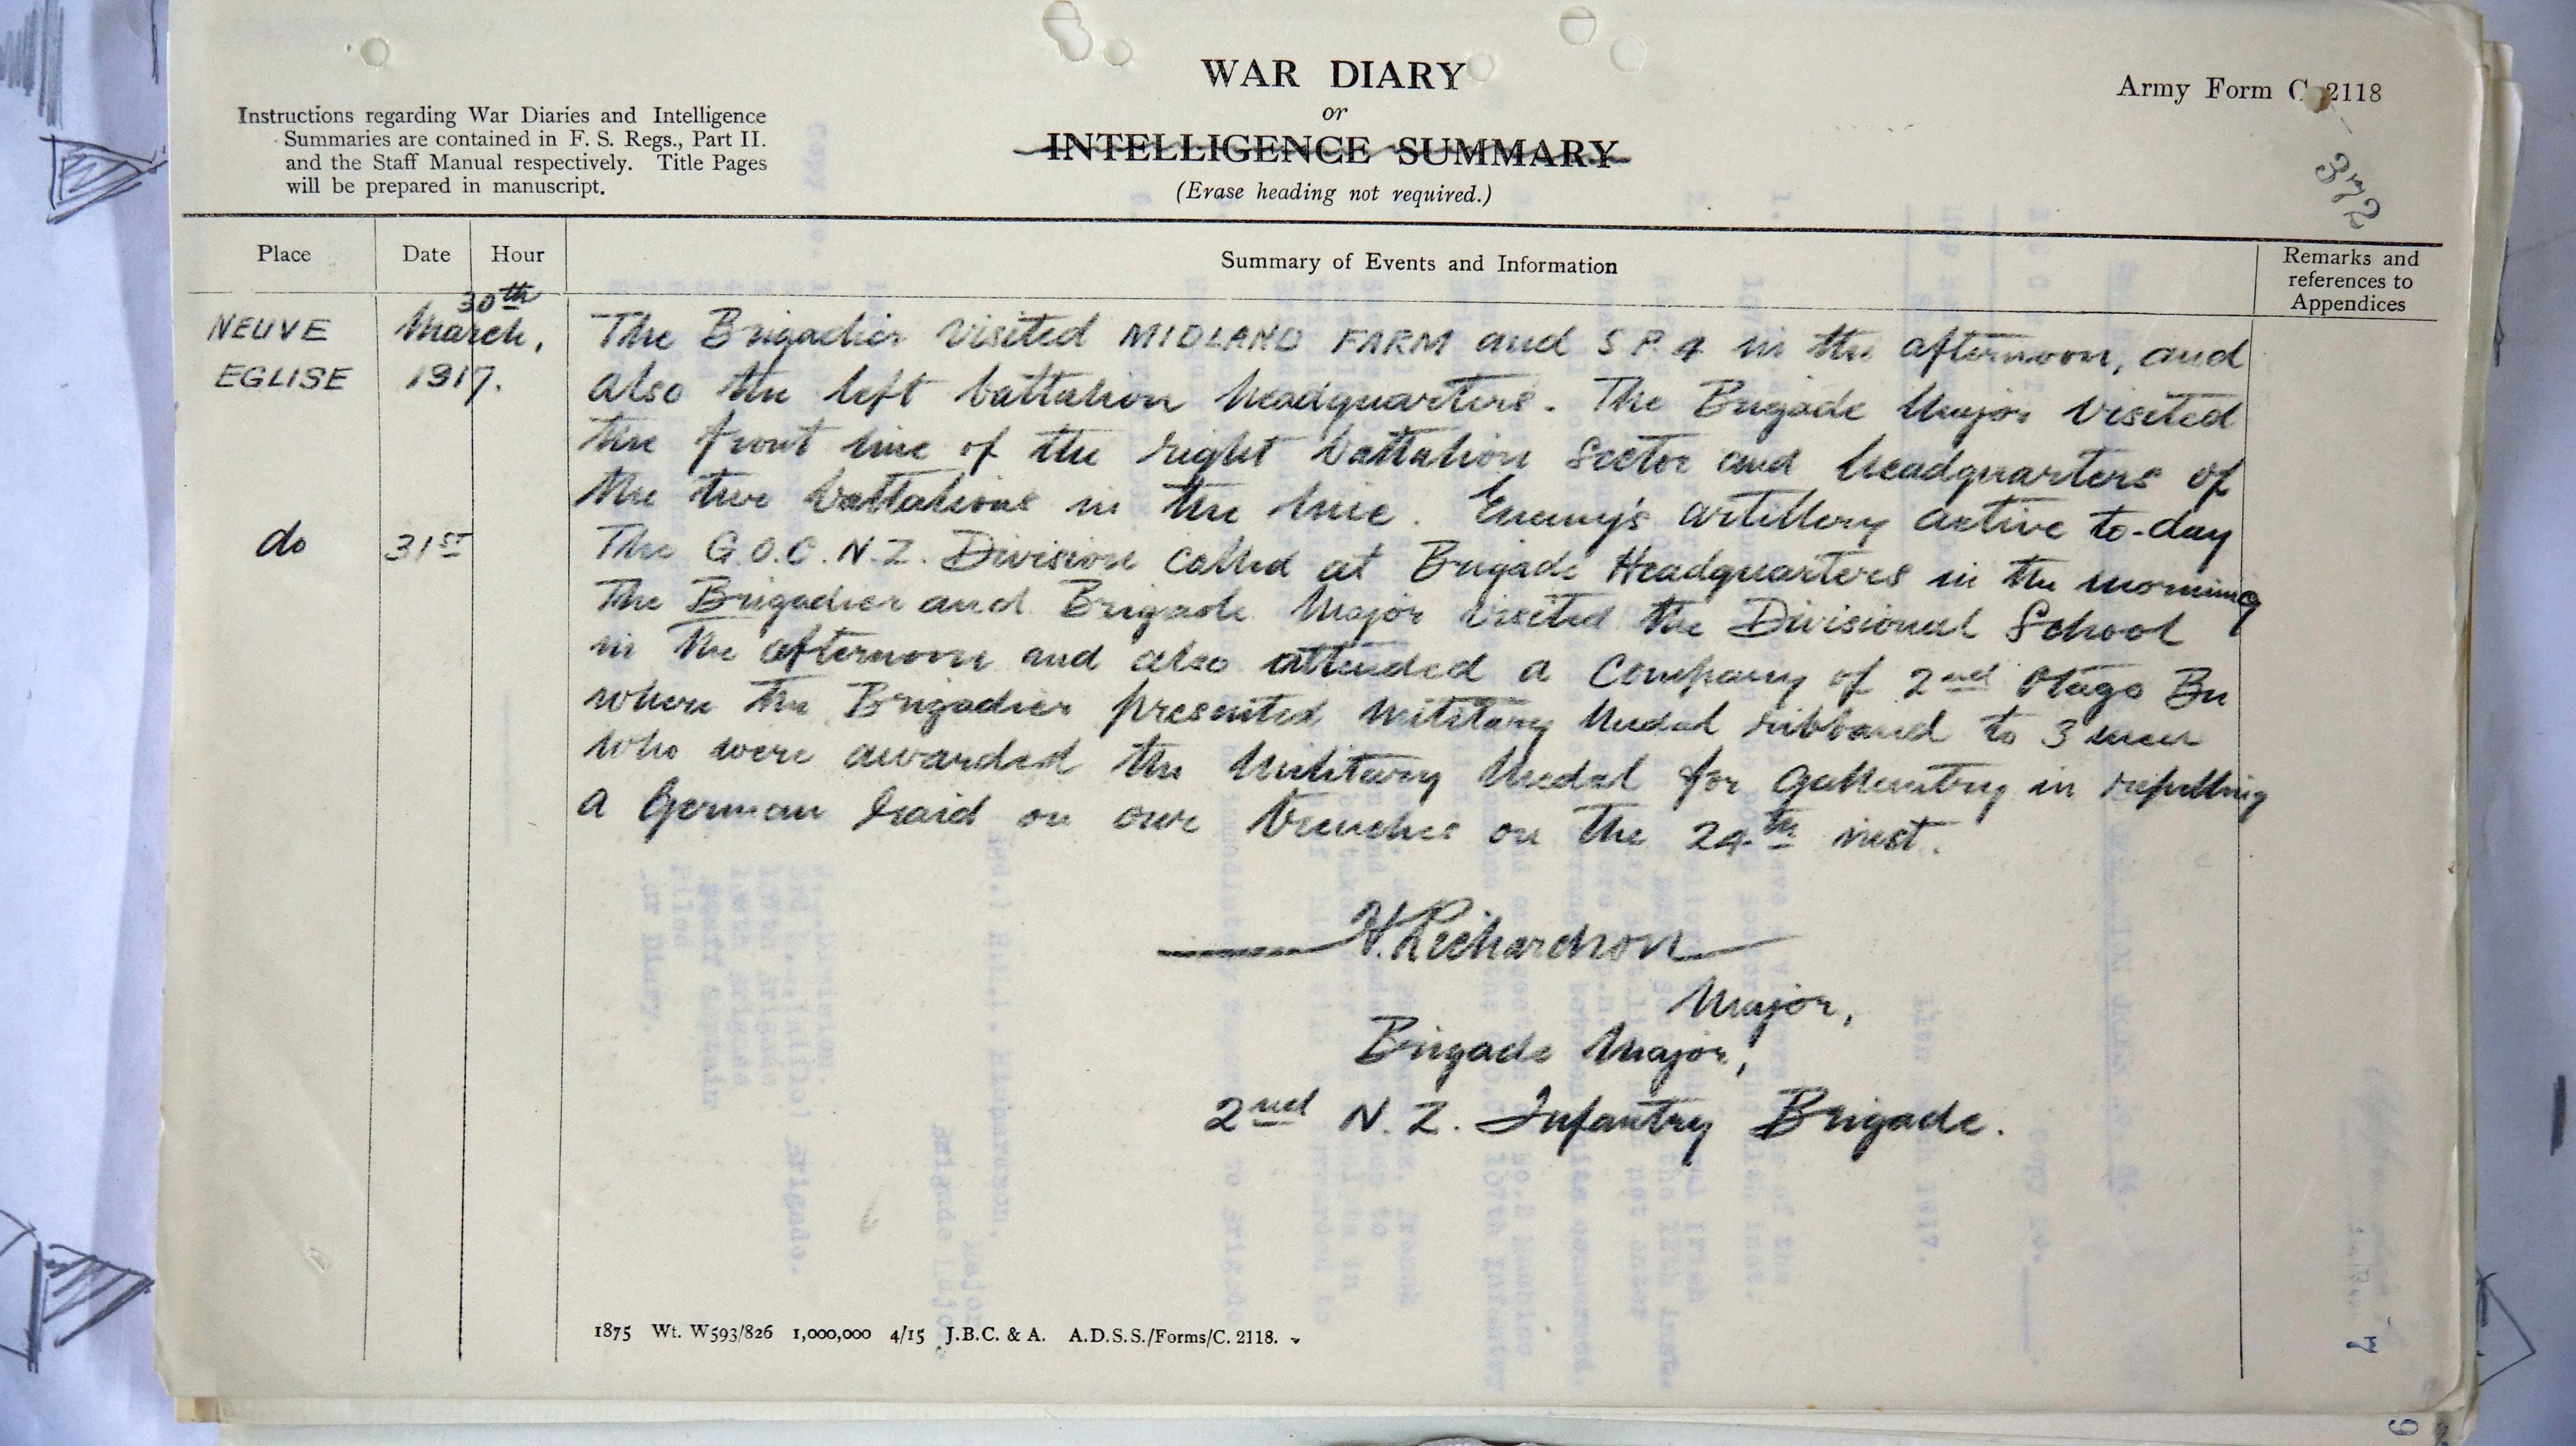 WAR DIARY
or
INTELLIGENCE SUMMARY
(Erase heading not required.)
Army Form C. 2118
372
Instructions regarding War Diaries and Intelligence
Summaries are contained in F. S. Regs., Part II.
and the Staff Manual respectively. Title Pages
will be prepared in manuscript.
Place Date Hour Summary of Events and Information Remarks and references to Appendices
NEUVE EGLISE
March, 30th 1917.
The Brigadier visited MIDLAND FARM and S P. 4 in the afternoon, and
also the left battalion headquarters. The Brigade Major visited
the front line of the right battalion sector and headquarters of
the two battalions in the line. Enemy's artillery active to-day
do 31ST The G.O.C. N.Z. Division called at Brigade Headquarters in the morning
The Brigadier and Brigade Major visited the Divisional School
in the afternoon and also attended a Company of 2nd Otago Bn
where the Brigadier presented Military Medal ribband to 3 men
who were awarded the Military Medal for gallantry in repelling
a German raid on our trenches on the 24th inst.
H. Richardson
Major,
Brigade Major,
2nd N. Z. Infantry Brigade.
1875 Wt. W593/826 1,000,000 4/15 J.B.C. & A. A.D.S.S./Forms/C. 2118.